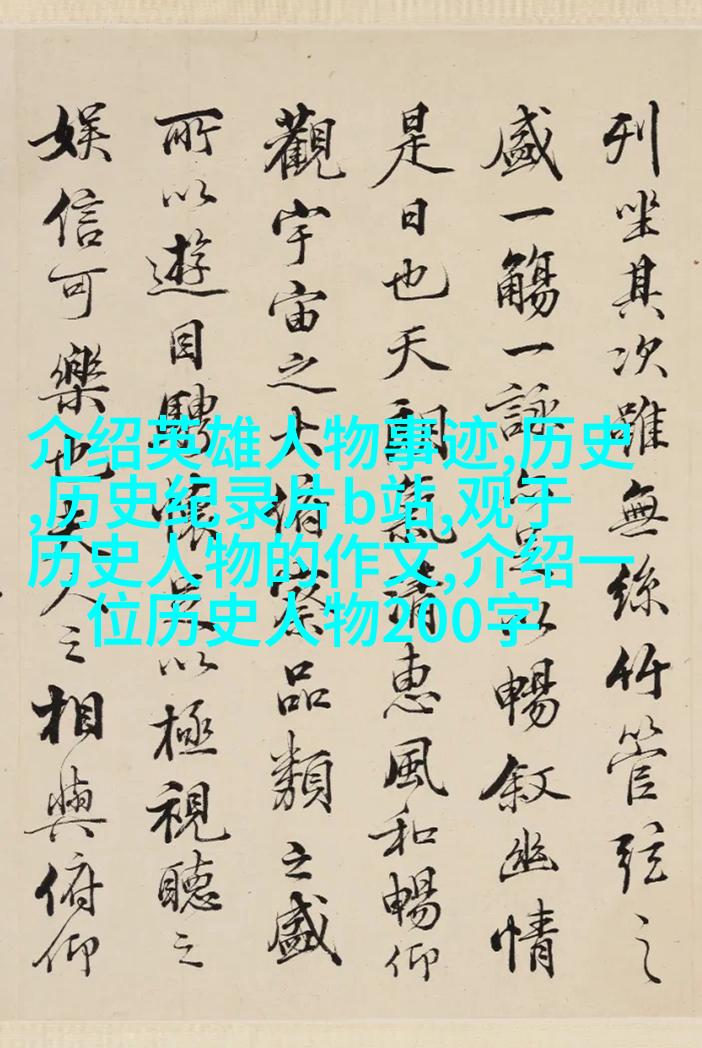 列坐其次雖無絲竹管弦之
盛一觴一詠亦足以暢敘幽情
是日也天朗氣清惠風和暢仰
觀宇宙之大俯察品類之盛
所以遊目騁懷足以極視聽之
娛信可樂也夫人之相與俯仰
介绍英雄人物事迹,历史
,历史纪录片b站,观于
历史人物的作文,介绍一
位历史人物200字